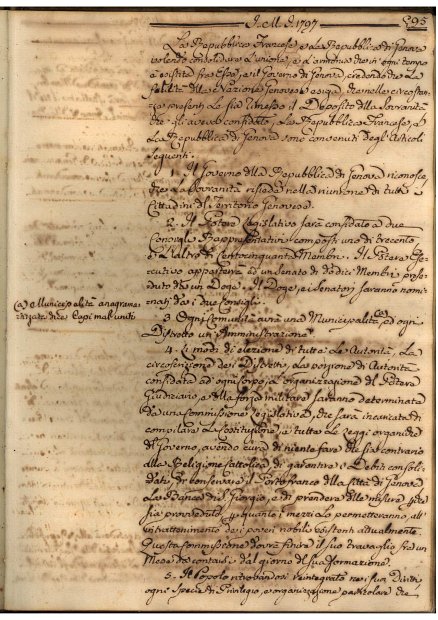 J. M. J. 1797
295
La Repubblica Francese, e La Repubblica di Genova
volendo consolidare L'unione, e L'armonia che in ogni tempo
è esistita fra Esse, e il Governo di Genova, credendo che La
felicità della Nazione Genovese esiga, che nelle circostan-
ze presenti La sia il Deposito della Sovranità
che gli aveva confidato. La Repubblica Francese, e
La Repubblica di Genova sono convenuti degl'Articoli
Seguenti.
1. Il Governo della Repubblica di Genova riconosce
che La Sovranità risieda nella riunione di tutti i
Cittadini del Territorio Genovese.
2. Il Potere Legislativo sarà confidato a due
Consigli Rappresentativi composti uno di trecento,
e L'altro di Centocinquanta Membri. Il Potere Ese-
cutivo apparterrà ad un Senato di dodici Membri prese-
duto da un Doge. Il Doge, e i Senatori saranno nomi-
nati da i due Consigli.
3. Ogni Comunità avrà una Municipalità (a) ed ogni
Distretto un'Amministrazione
(a) Municipalità anagramma-
tizzata dice Capi mal uniti
4. I modi di elezione di tutte Le Autorità, La
circoscrizione dei Distretti, La porzione di Autorità
confidata ad ogni Corpo, La organizzazione del Potere
Giudiziario, e della forza militare saranno determinata
da una Commissione Legislativa, che sarà incaricata di
compilare La Costituzione, e tutte Le Leggi organiche
del Governo, avendo cura di niente fare che sia contrario
alla Religione Cattolica, di garantire i Debiti consoli-
dati, di conservare il Portofranco della Città di Genova
La Banca di S. Giorgio, e di prendere delle misure, che
sia proveduto, per quanto i mezzi Lo permetteranno, all'
intrattenimento dei poveri nobili esistenti attualmente.
Questa Commissione dovrà finire il suo travaglio fra un
Mese da contarsi dal giorno del sua formazione.
5. Il Popolo ritrovandosi reintegrato nei suoi Diritti
ogni specie di Privilegio, e organizzazione particolare che